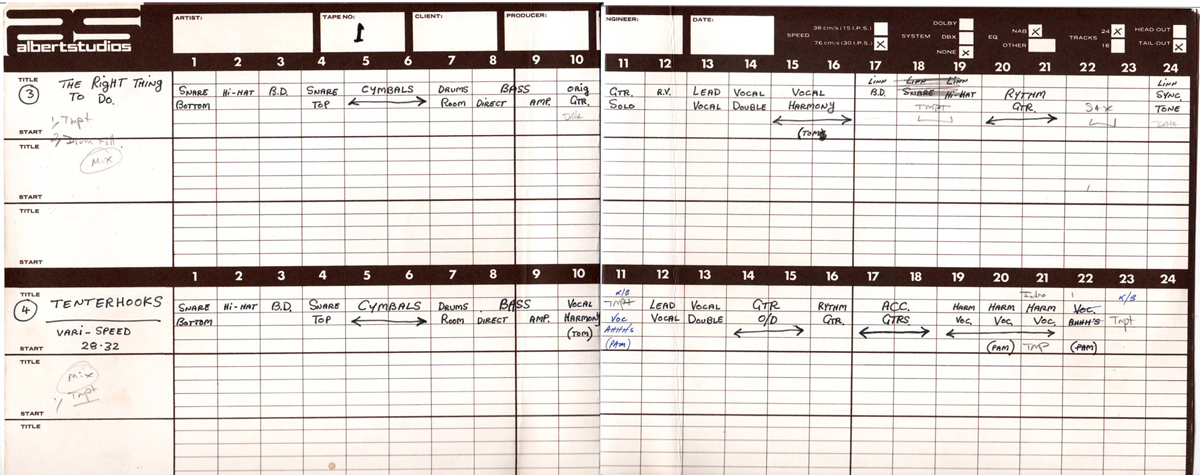 albertstudios
ARTIST:
TAPE NO:
1
CLIENT:
PRODUCER:
NGINEER:
DATE:
SPEED
38 cm/s (15 I.P.S.)
76 cm/s (30 I.P.S.) X
SYSTEM
DOLBY
DBX
NONE X
EQ
NAB X
OTHER
TRACKS
24 X
16
HEAD-OUT
TAIL-OUT X
1 2 3 4 5 6 7 8 9 10 11 12 13 14 15 16 17 18 19 20 21 22 23 24
TITLE
3
THE RIGHT THING
TO DO.
1/ Tmpt
2/ Drum Fill
Mix
START
SNARE BOTTOM
Hi-HAT
B.D.
SNARE TOP
CYMBALS
DRUMS ROOM
BASS
DIRECT AMP.
ORIG GTR.
GTR. SOLO
R.V.
LEAD VOCAL
VOCAL DOUBLE
VOCAL HARMONY
(TOM)
LINN B.D.
LINN SNARE
LINN Hi-HAT
TMPT
RYTHM GTR.
SAX
LINN SYNC. TONE
TITLE
START
TITLE
START
1 2 3 4 5 6 7 8 9 10 11 12 13 14 15 16 17 18 19 20 21 22 23 24
TITLE
4
TENTERHOOKS
VARI-SPEED
28.32
START
SNARE BOTTOM
Hi-HAT
B.D.
SNARE TOP
CYMBALS
DRUMS ROOM
BASS
DIRECT AMP.
VOCAL HARMONY (TOM)
K/B
TMPT
VOC AHHH'S (PAM)
LEAD VOCAL
VOCAL DOUBLE
GTR O/D
RYTHM GTR.
ACC. GTRS
HARM VOC.
HARM VOC. (PAM)
Intro
HARM VOC.
TMP
VOC. AHHH'S (PAM)
K/B
Tmpt
TITLE
Mix
1/ Tmpt
START
TITLE